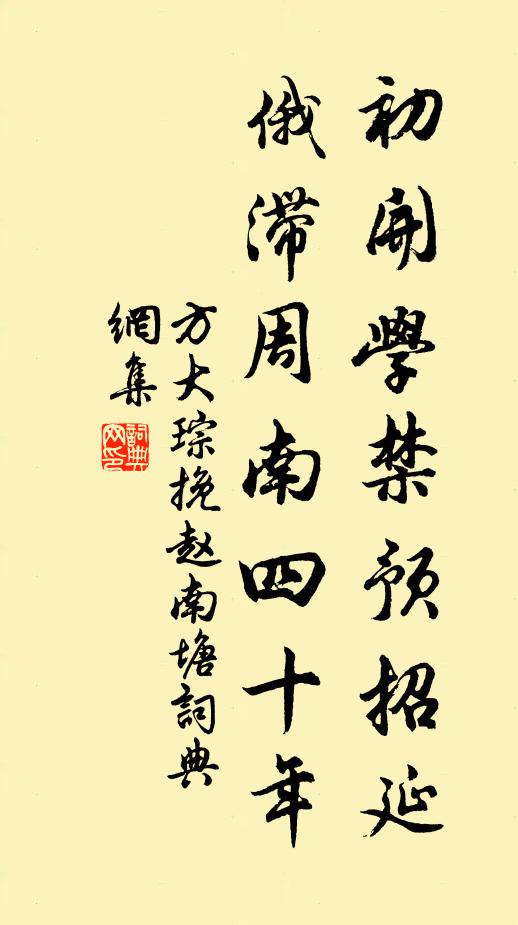 初開學禁預招延
俄滯周南四十年
方大琮挽赵南塘詞典
網集
詞典网印